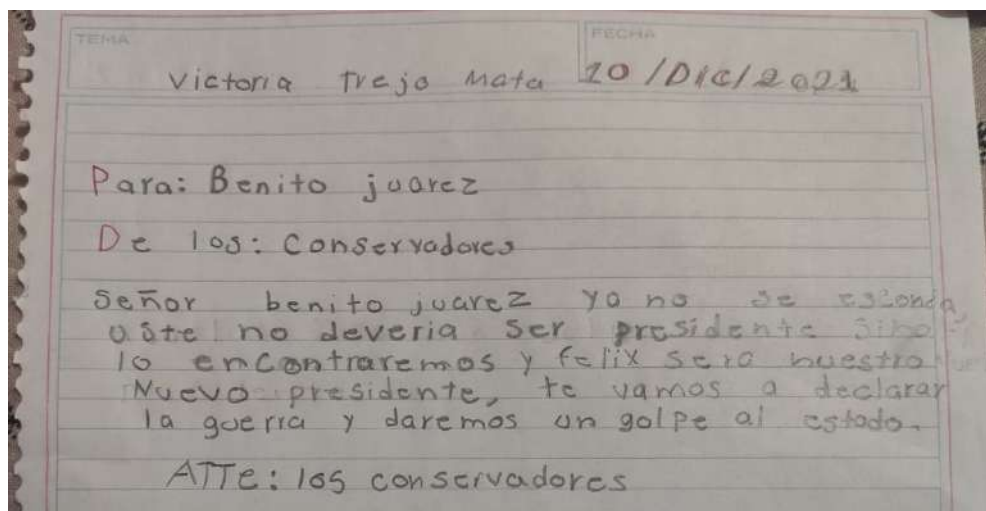 TEMA
FECHA
Victoria Trejo Mata 10/Dic/2021
Para: Benito juarez
De los: Conservadores
Señor benito juarez ya no se esconda,
uste no deveria ser presidente sino
lo encontraremos y felix sera nuestro
Nuevo presidente, te vamos a declarar
la guerra y daremos un golpe al estado.
ATTE: los conservadores